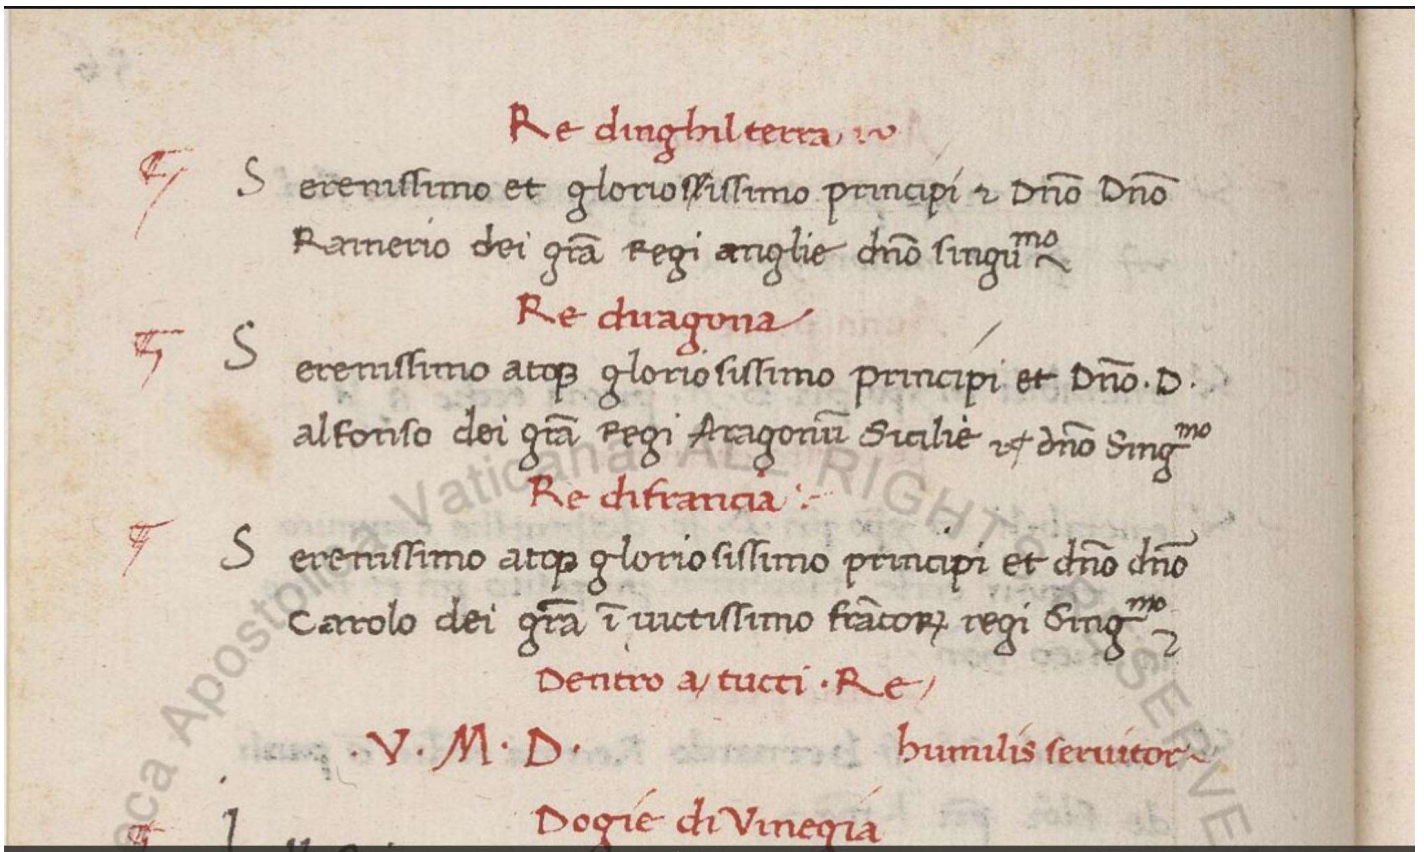 Re dinghilterra
Serenissimo et gloriosissimo principi & Dño Dño
Rainerio dei gr̃a Regi anglie dño singu^mo
Re duagona
Serenissimo atqꝫ gloriosissimo principi et Dño · D ·
alfonso dei gr̃a Regi Aragonũ Sicilie dño Sing^mo
Re di francia
Serenissimo atqꝫ gloriosissimo principi et dño dño
Carolo dei gr̃a ĩ uictissimo frãcoꝝ regi Sing^mo
Dentro a tucti · Re
· V · M · D · humilis seruitor
Dogie di Vinegia